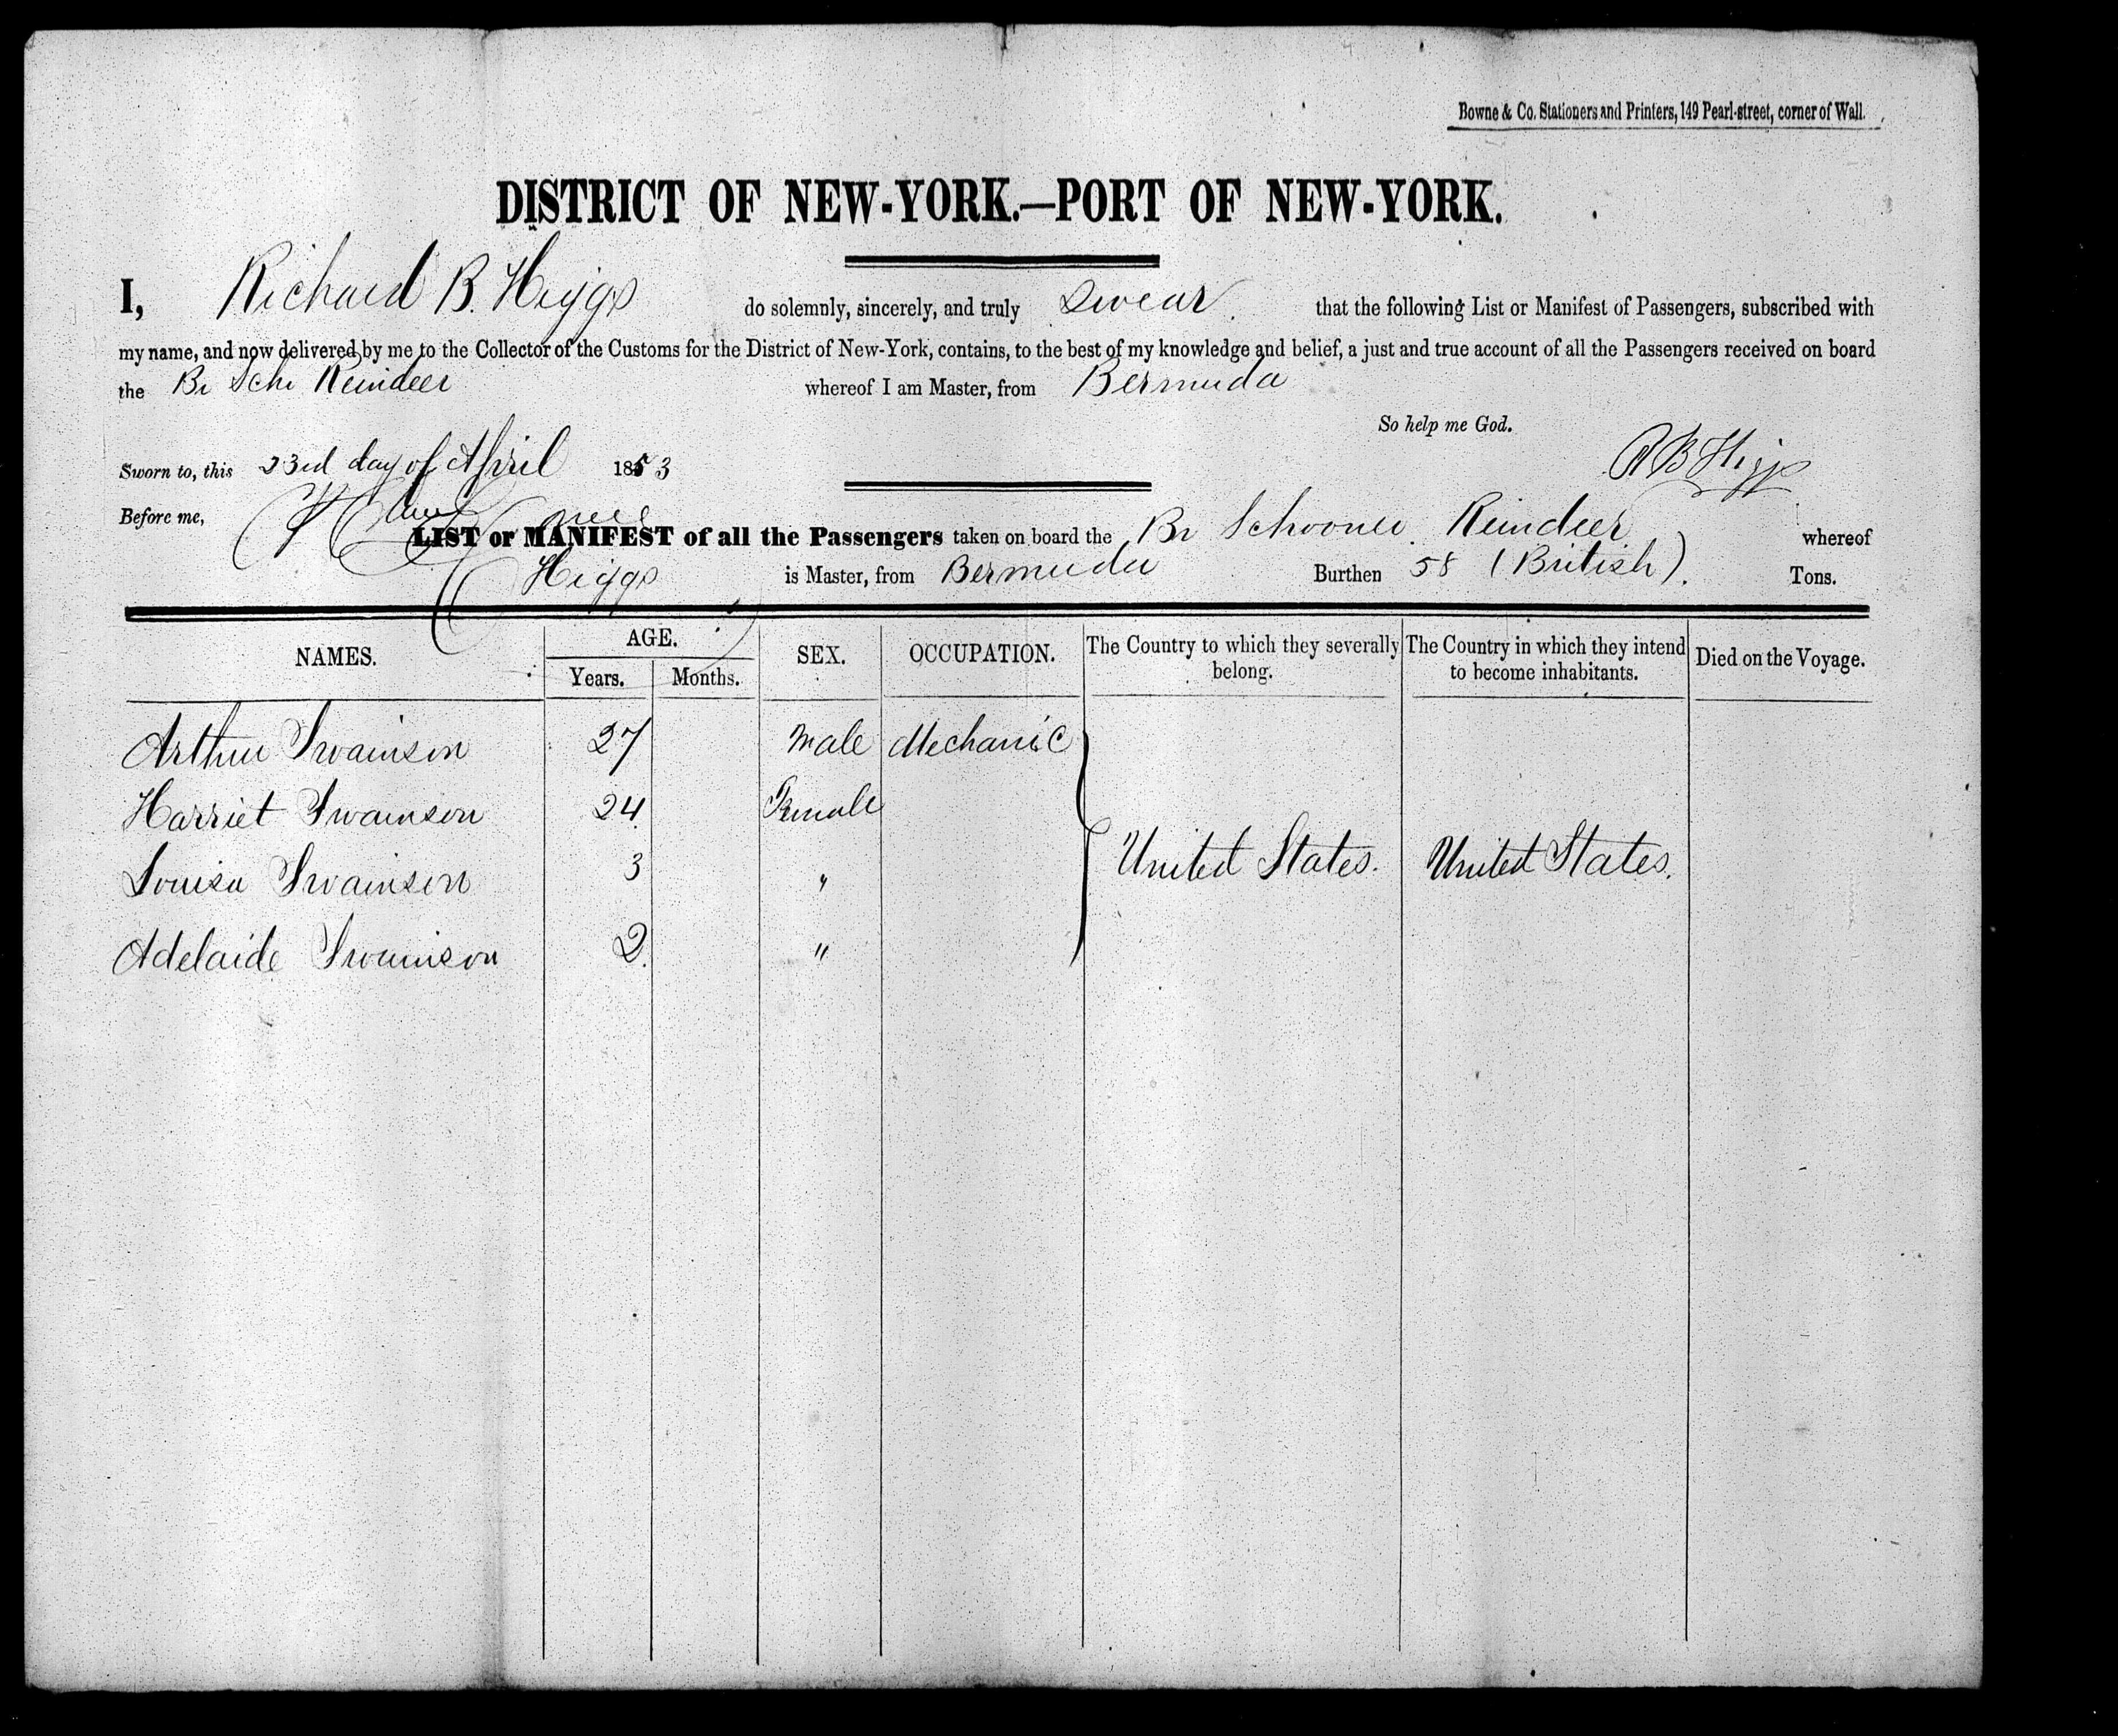 Bowne & Co. Stationers and Printers, 149 Pearl-street, corner of Wall.
DISTRICT OF NEW-YORK.—PORT OF NEW-YORK.
I, Richard B. Higgs do solemnly, sincerely, and truly swear that the following List or Manifest of Passengers, subscribed with
my name, and now delivered by me to the Collector of the Customs for the District of New-York, contains, to the best of my knowledge and belief, a just and true account of all the Passengers received on board
the Br Schr Reindeer whereof I am Master, from Bermuda
So help me God.
Sworn to, this 23rd day of April 1853 R B Higgs
Before me,
LIST or MANIFEST of all the Passengers taken on board the Br Schooner Reindeer whereof
Higgs is Master, from Bermuda Burthen 58 (British). Tons.
NAMES. AGE. SEX. OCCUPATION. The Country to which they severally belong. The Country in which they intend to become inhabitants. Died on the Voyage.
Years. Months.
Arthur Swainson 27 Male Mechanic
Harriet Swainson 24 Female
Louisa Swainson 3 " United States. United States.
Adelaide Swainson 2 "